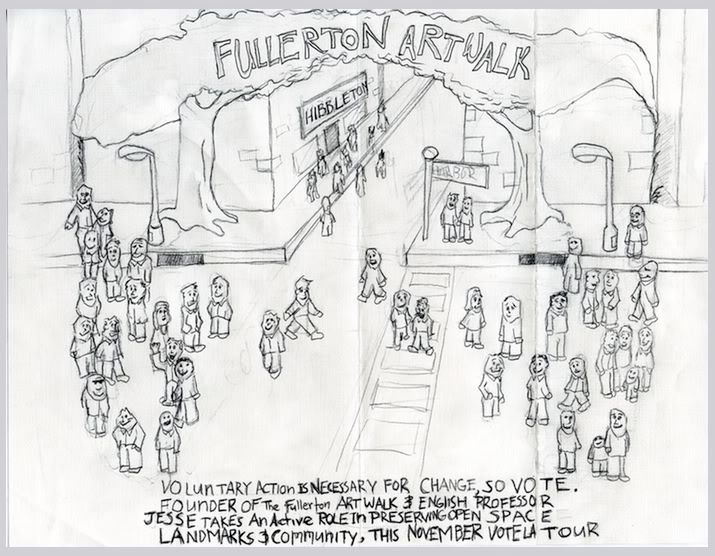 FULLERTON ARTWALK
HIBBLETON
HARBOR
VOLUNTARY ACTION IS NECESSARY FOR CHANGE, SO VOTE.
FOUNDER OF THE Fullerton ART WALK & ENGLISH PROFESSOR
JESSE TAKES AN ACTIVE ROLE IN PRESERVING OPEN SPACE
LANDMARKS & COMMUNITY, THIS NOVEMBER VOTE LA TOUR